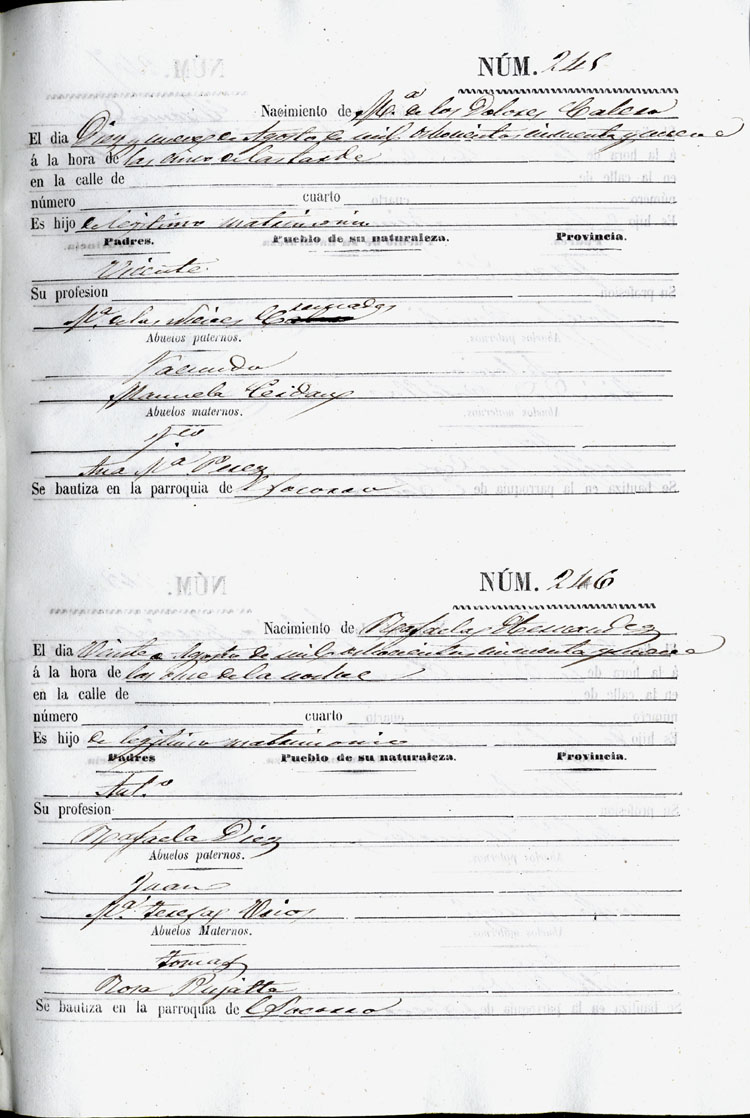 NÚM. 245
Nacimiento de Mª de los Dolores Calero
El dia Diez y nueve de Agosto de mil ochocientos cincuenta y nueve
á la hora de las cinco de la tarde
en la calle de
número cuarto
Es hijo de legitimo matrimonio
Padres. Pueblo de su naturaleza. Provincia.
Vicente
Su profesion
Mª de las Nieves
Abuelos paternos.
Facundo
Manuela
Abuelos maternos.
Fco
Ana Mª Perez
Se bautiza en la parroquia de l Socorro
NÚM. 246
Nacimiento de Rafaela Hernandez
El dia Veinte de Agosto de mil ochocientos cincuenta y nueve
á la hora de las once de la noche
en la calle de
número cuarto
Es hijo de legitimo matrimonio
Padres Pueblo de su naturaleza. Provincia.
Antº
Su profesion
Rafaela Diez
Abuelos paternos.
Juan
Mª Teresa
Abuelos Maternos.
Tomas
Rosa
Se bautiza en la parroquia de l Socorro